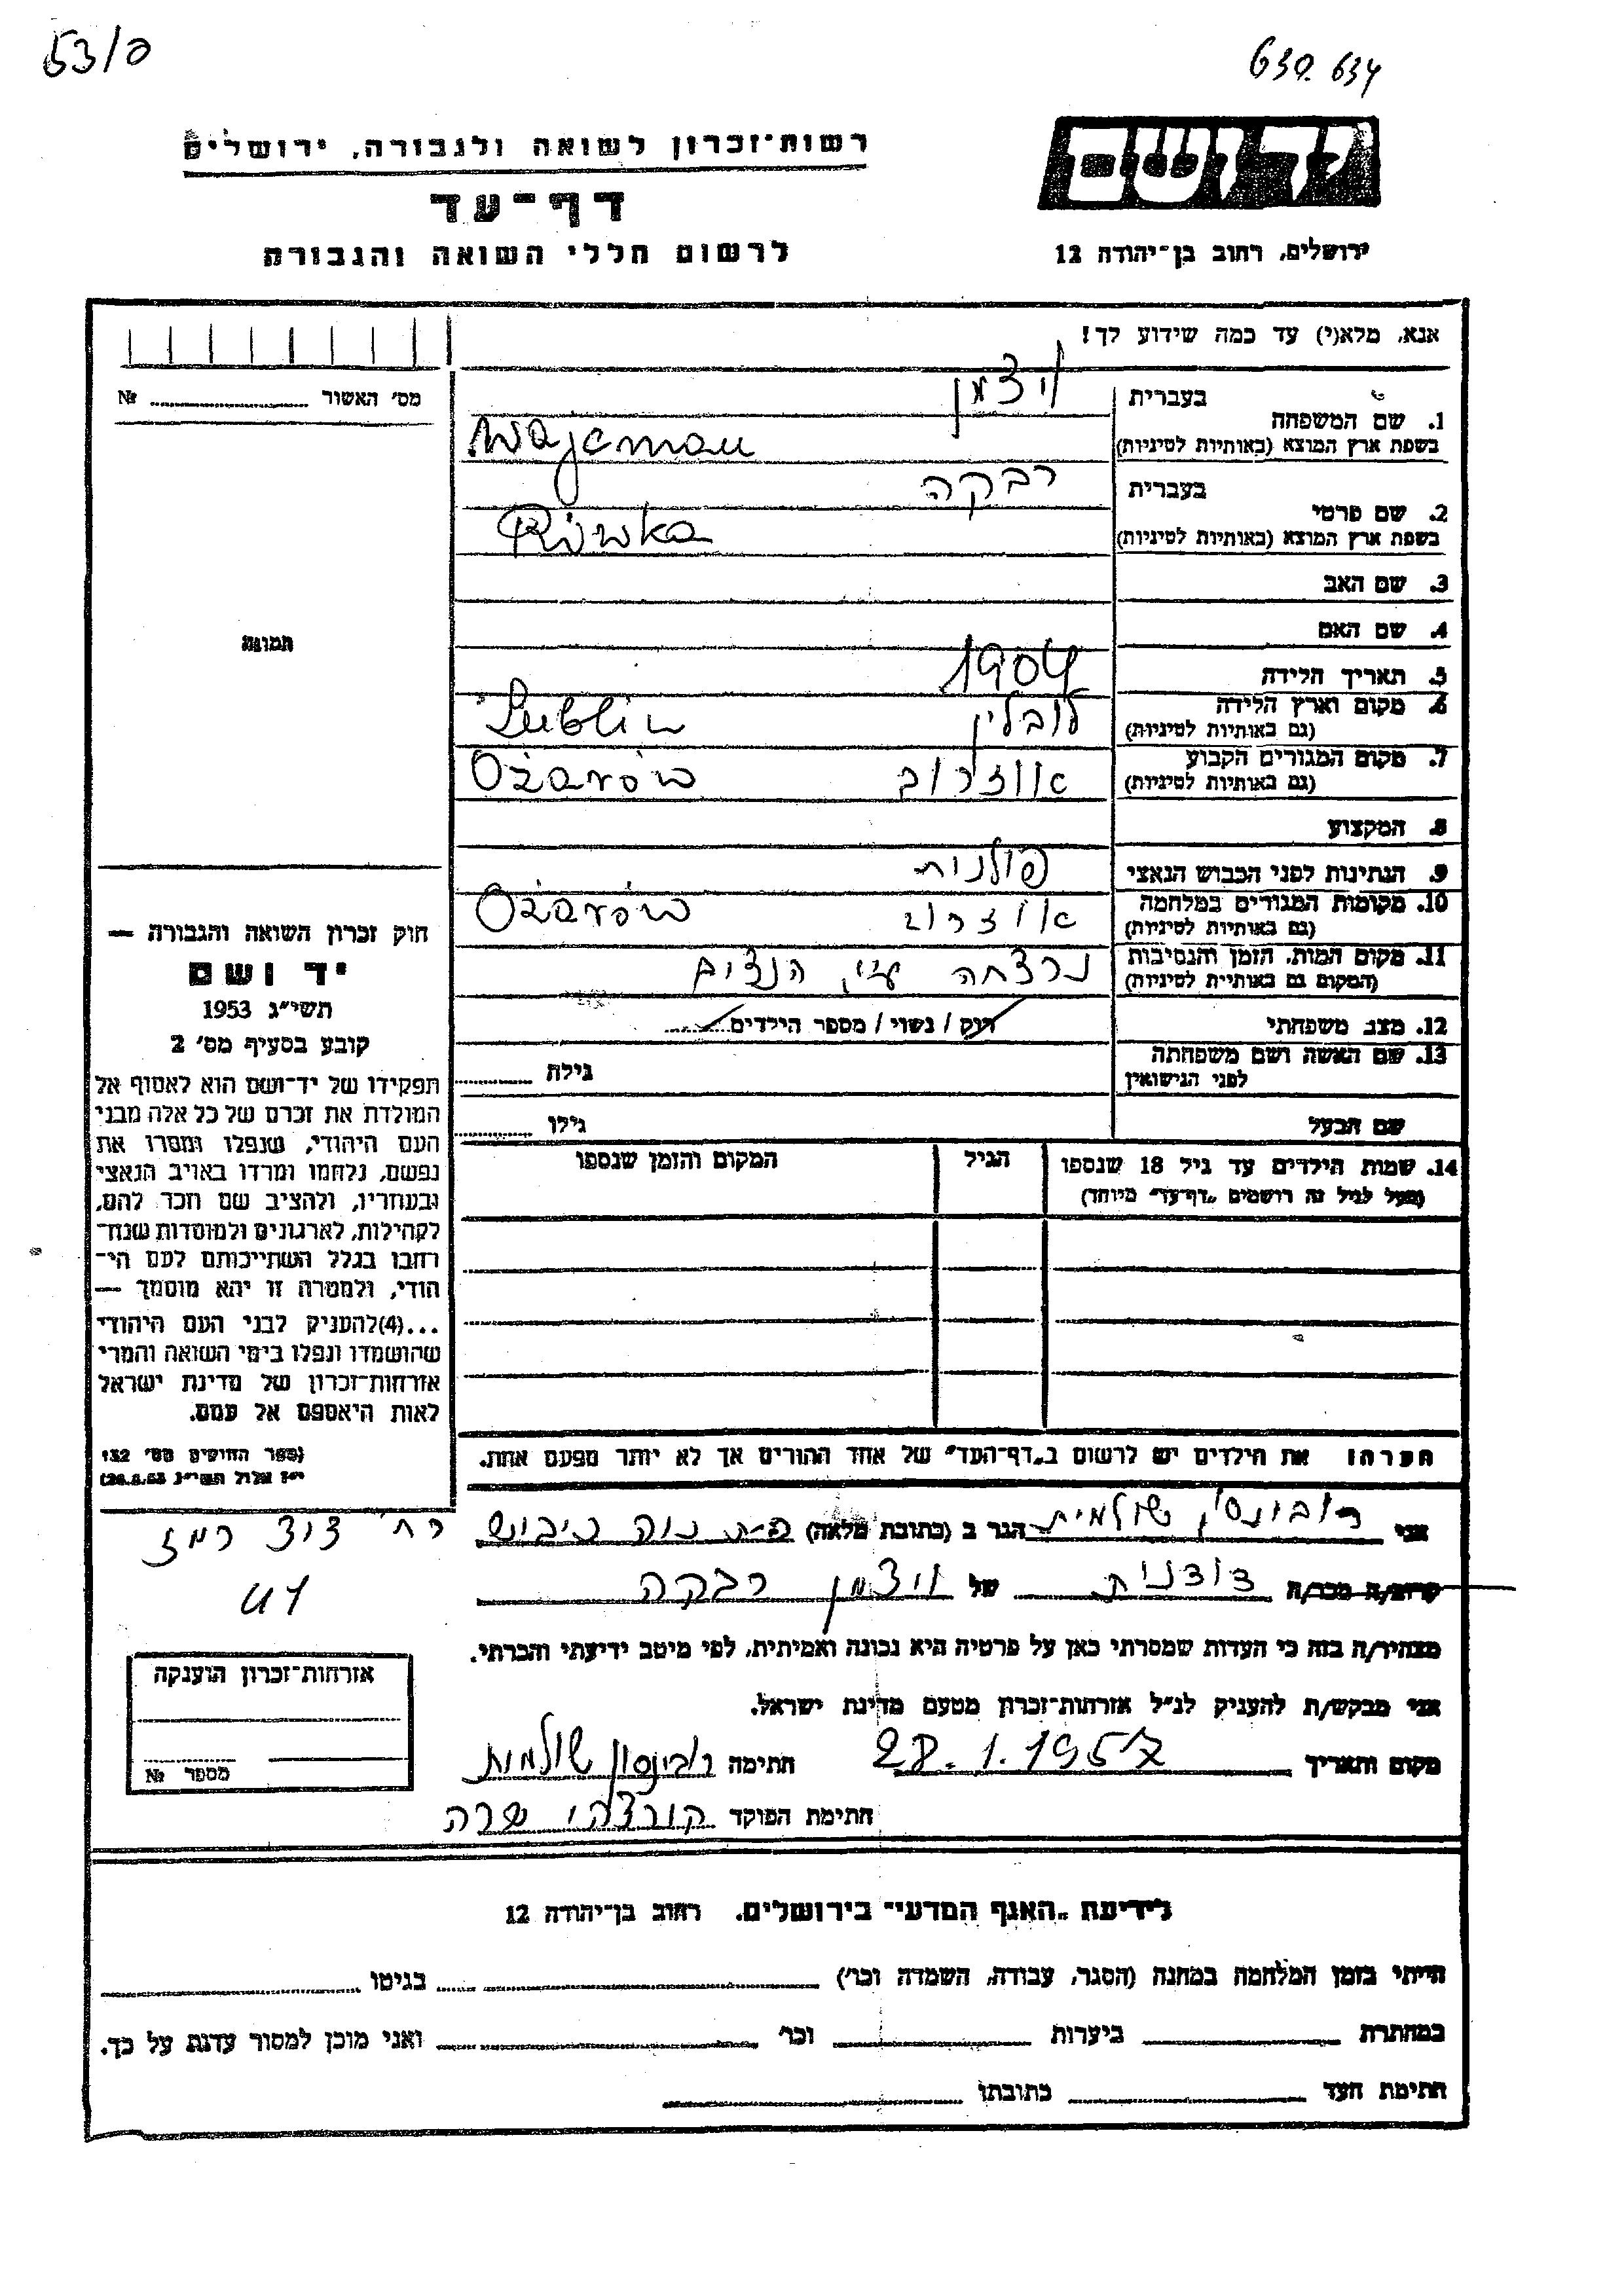 53/ס
630.634
יד ושם
ירושלים, רחוב בן־יהודה 12
רשות־זכרון לשואה ולגבורה, ירושלים
דף־עד
לרשום חללי השואה והגבורה
אנא, מלא(י) עד כמה שידוע לך!
מס' האשור № 
1. שם המשפחה בעברית ויצמן
בשפת ארץ המוצא (באותיות לטיניות) Wajcman
2. שם פרטי בעברית רבקה
בשפת ארץ המוצא (באותיות לטיניות) Rówka
3. שם האב
4. שם האם
5. תאריך הלידה 1904
6. מקום וארץ הלידה לובלין Lublin
(גם באותיות לטיניות)
7. מקום המגורים הקבוע אוזרוב Ożarów
(גם באותיות לטיניות)
8. המקצוע
9. הנתינות לפני הכבוש הנאצי פולנית
10. מקומות המגורים במלחמה אוזרוב Ożarów
(גם באותיות לטיניות)
11. מקום המות, הזמן והנסיבות נרצחה ע״י הנצים
(המקום גם באותיות לטיניות)
12. מצב משפחתי רוק / נשוי / מספר הילדים
13. שם האשה ושם משפחתה גילה
לפני הנישואין
שם הבעל גילו
14. שמות הילדים עד גיל 18 שנספו הגיל המקום והזמן שנספו
(מעל לגיל זה רושמים „דף־עד״ מיוחד)
הערה: את הילדים יש לרשום ב„דף־העד״ של אחד ההורים אך לא יותר מפעם אחת.
תמונה
חוק זכרון השואה והגבורה —
יד ושם
תשי״ג 1953
קובע בסעיף מס' 2
תפקידו של יד־ושם הוא לאסוף אל
המולדת את זכרם של כל אלה מבני
העם היהודי, שנפלו ומסרו את
נפשם, נלחמו ומרדו באויב הנאצי
ובעוזריו, ולהציב שם וזכר להם,
לקהילות, לארגונים ולמוסדות שנח־
רבו בגלל השתייכותם לעם הי־
הודי, ולמטרה זו יהא מוסמך —
...(4) להעניק לבני העם היהודי
שהושמדו ונפלו בימי השואה והמרי
אזרחות־זכרון של מדינת ישראל
לאות היאספם אל עמם.
(ספר החוקים מס' 132
י״ז אלול תשי״ג 28.8.53)
אני רובינסון שולמית הגר ב (כתובת מלאה) פ״ת נוה
רח' דוד רמז
41
קרוב/ה מכר/ה דודנית של ויצמן רבקה
מצהיר/ה בזה כי העדות שמסרתי כאן על פרטיה היא נכונה ואמיתית, לפי מיטב ידיעתי והכרתי.
אני מבקש/ת להעניק לנ״ל אזרחות־זכרון מטעם מדינת ישראל.
מקום ותאריך 28.1.1957 חתימה רובינסון שולמית
חתימת הפוקד שרה
אזרחות־זכרון הוענקה
מספר №
לידיעת „האגף המדעי״ בירושלים, רחוב בן־יהודה 12
הייתי בזמן המלחמה במחנה (הסגר, עבודה, השמדה וכו') בגיטו
במחתרת ביערות וכו' ואני מוכן למסור עדות על כך.
חתימת העד כתובתו